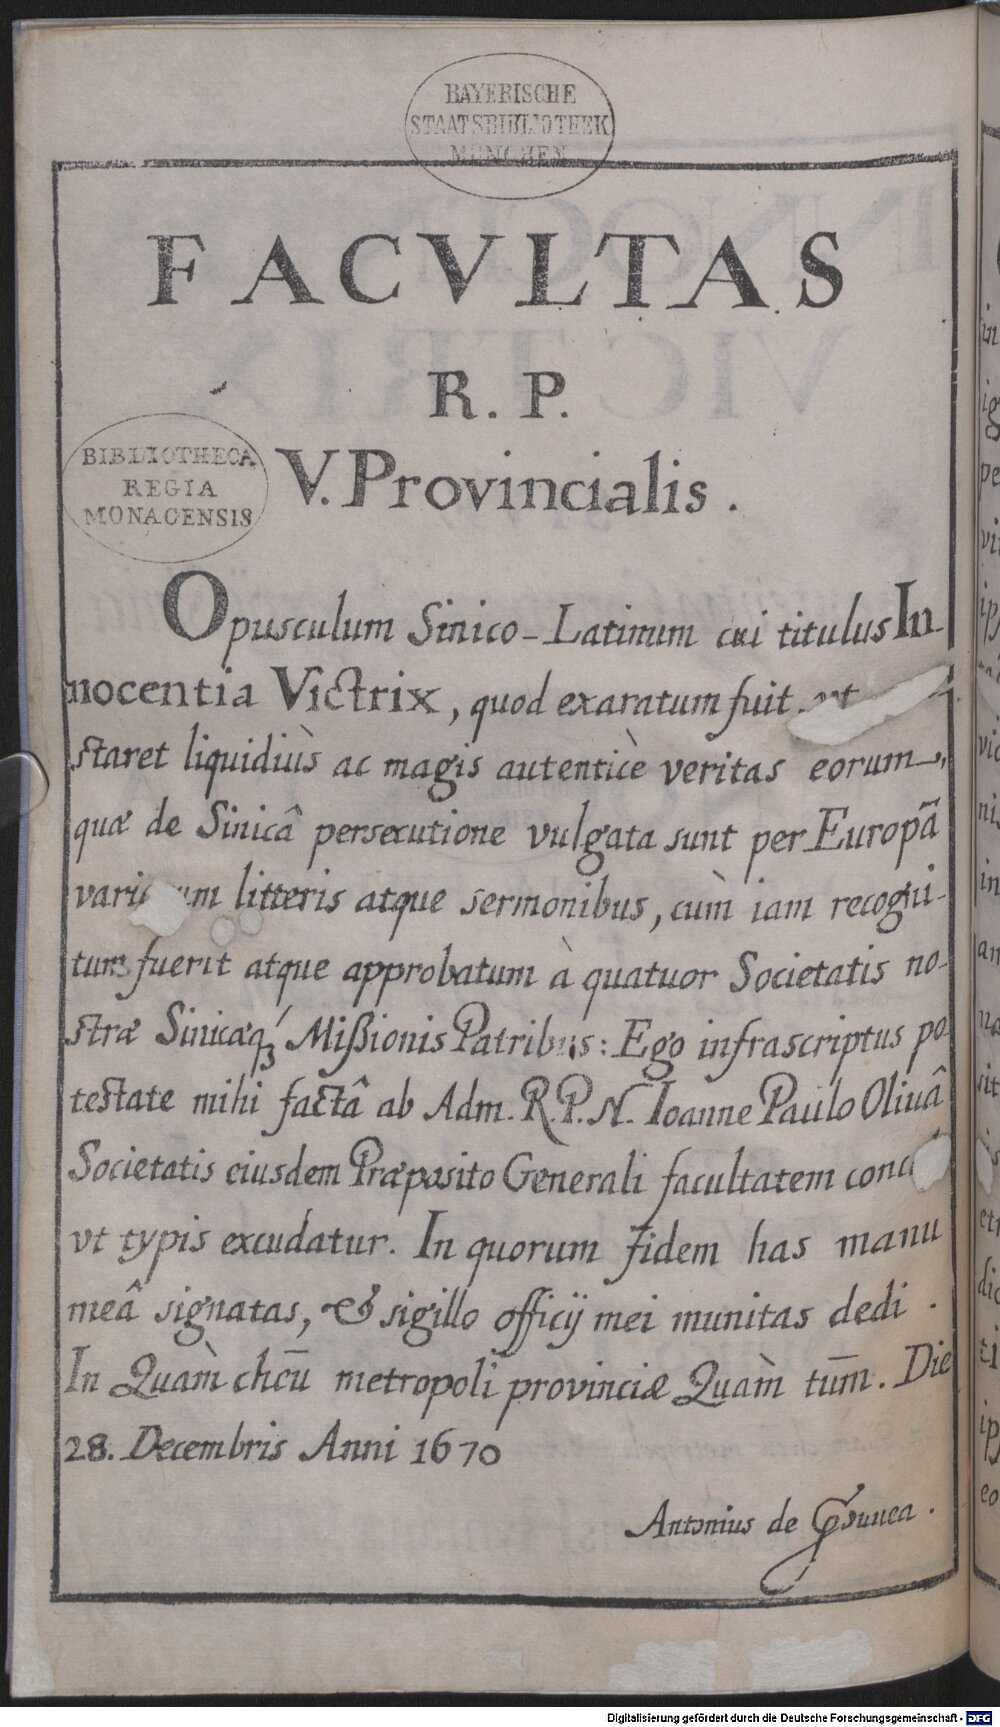 BAYERISCHE
STAATSBIBLIOTHEK
MÜNCHEN
FACVLTAS
R. P.
BIBLIOTHECA
REGIA
MONACENSIS
V. Provincialis.
Opusculum Sinico-Latinum cui titulus In-
nocentia Victrix, quod exaratum fuit
staret liquidiùs ac magis autenticè veritas eorum,
quæ de Sinicâ persecutione vulgata sunt per Europã
litteris atque sermonibus, cùm iam recogni-
tum fuerit atque approbatum à quatuor Societatis no-
stræ Sinicæq́ꝫ Mißionis Patribus: Ego infrascriptus po
testate mihi factâ ab Adm. R. P. N. Ioanne Paulo Oliuâ
Societatis eiusdem Præposito Generali facultatem
vt typis excudatur. In quorum fidem has manu
meâ signatas, & sigillo officij mei munitas dedi.
In Quàm cheū metropoli provinciæ Quàm tūm. Die
28. Decembris Anni 1670
Antonius de Gouuea.
Digitalisierung gefördert durch die Deutsche Forschungsgemeinschaft - DFG